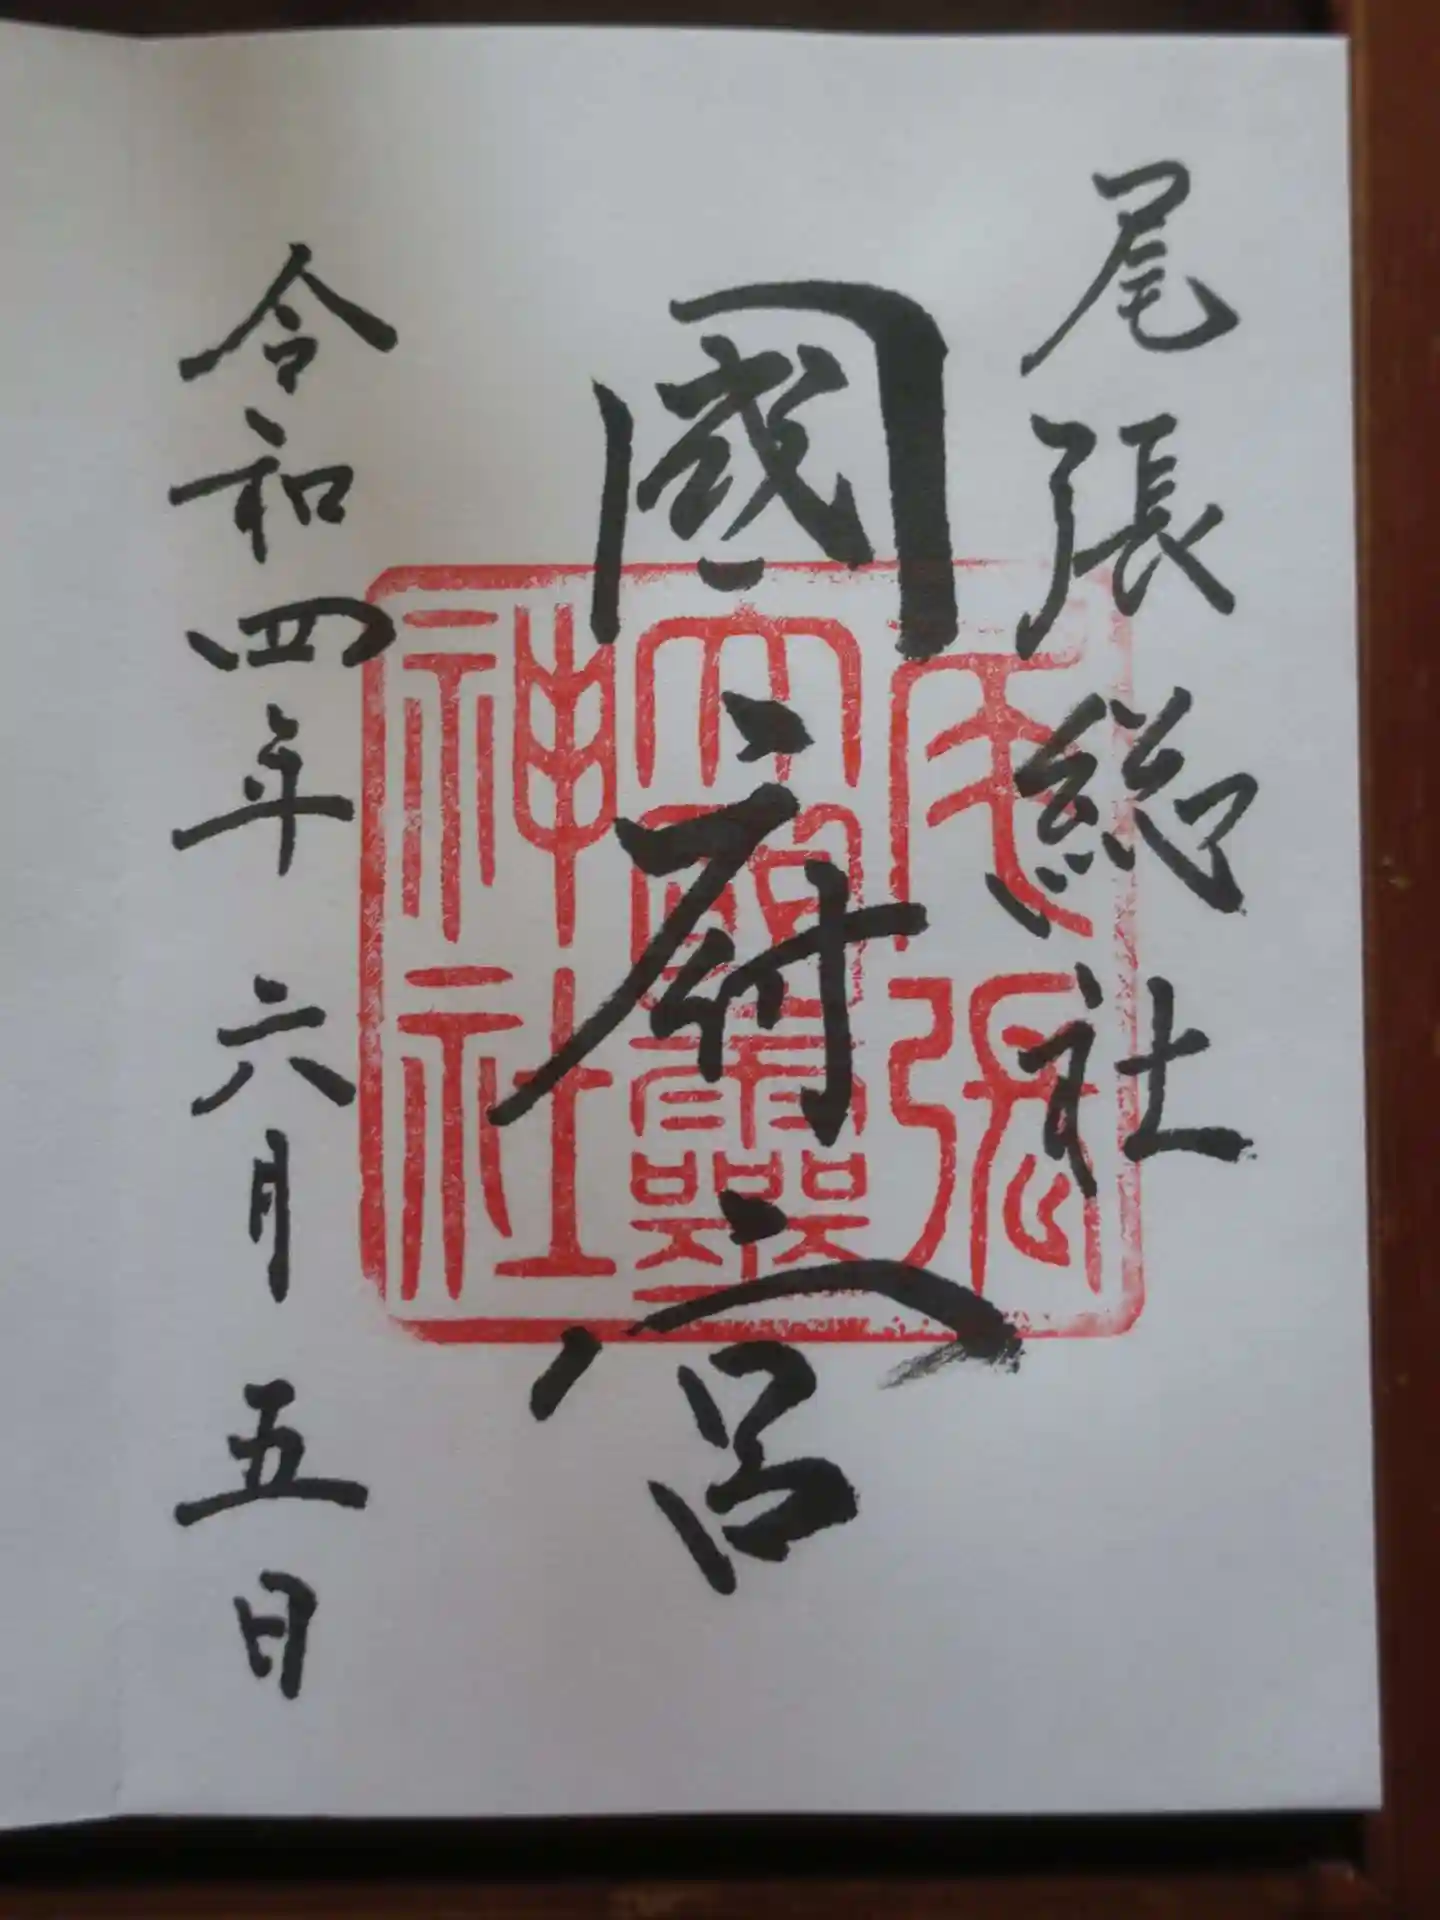 尾張総社
國府宮
令和四年六月五日
尾張
大國霊
神社